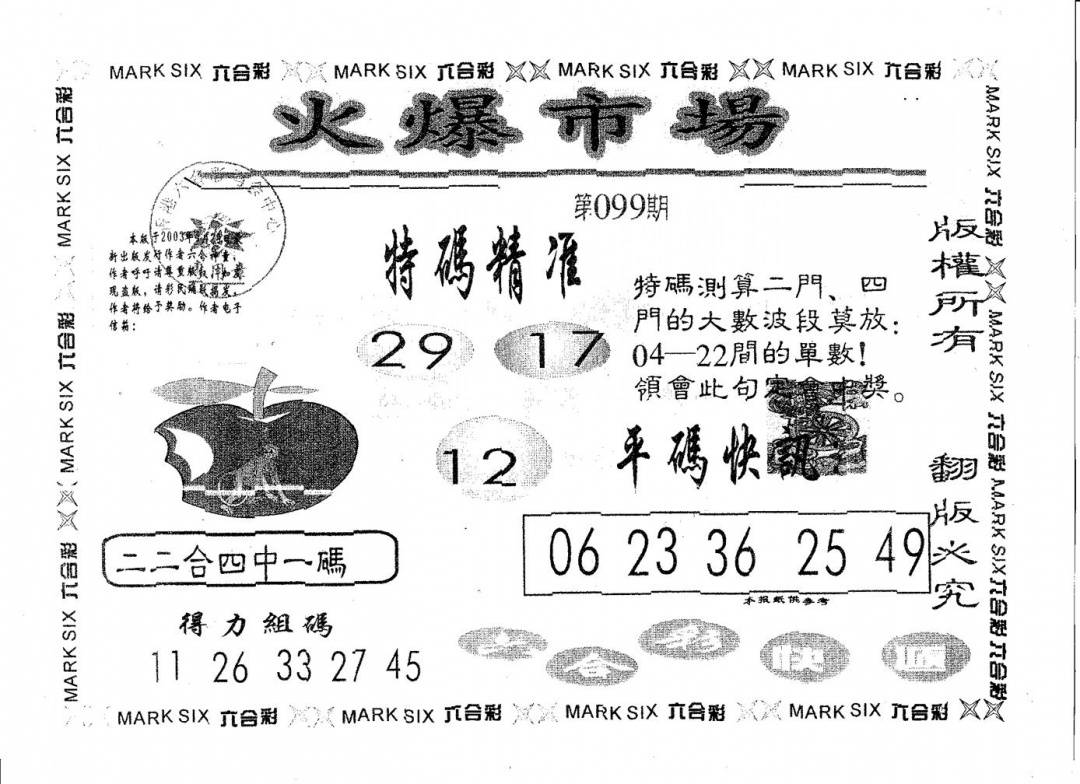 MARK SIX 六合彩 MARK SIX 六合彩 MARK SIX 六合彩 MARK SIX 六合彩
火爆市場
第099期
本版于2003年
新出版发行作者六合神童，
作者呼吁请尊重版权
现盗版，请彩民
作者将给予奖励。作者电子
信箱：
特碼精准
29 17
12
特碼測算二門、四
門的大數波段莫放：
04—22間的單數！
領會此句定會中獎。
平碼快訊
06 23 36 25 49
本报纸供参考
二二合四中一碼
得力組碼
11 26 33 27 45
六合彩快
版權所有
翻版必究
MARK SIX 六合彩 MARK SIX 六合彩 MARK SIX 六合彩
MARK SIX 六合彩 MARK SIX 六合彩 MARK SIX 六合彩 六合彩
MARK SIX 六合彩 MARK SIX 六合彩 MARK SIX 六合彩 MARK SIX 六合彩